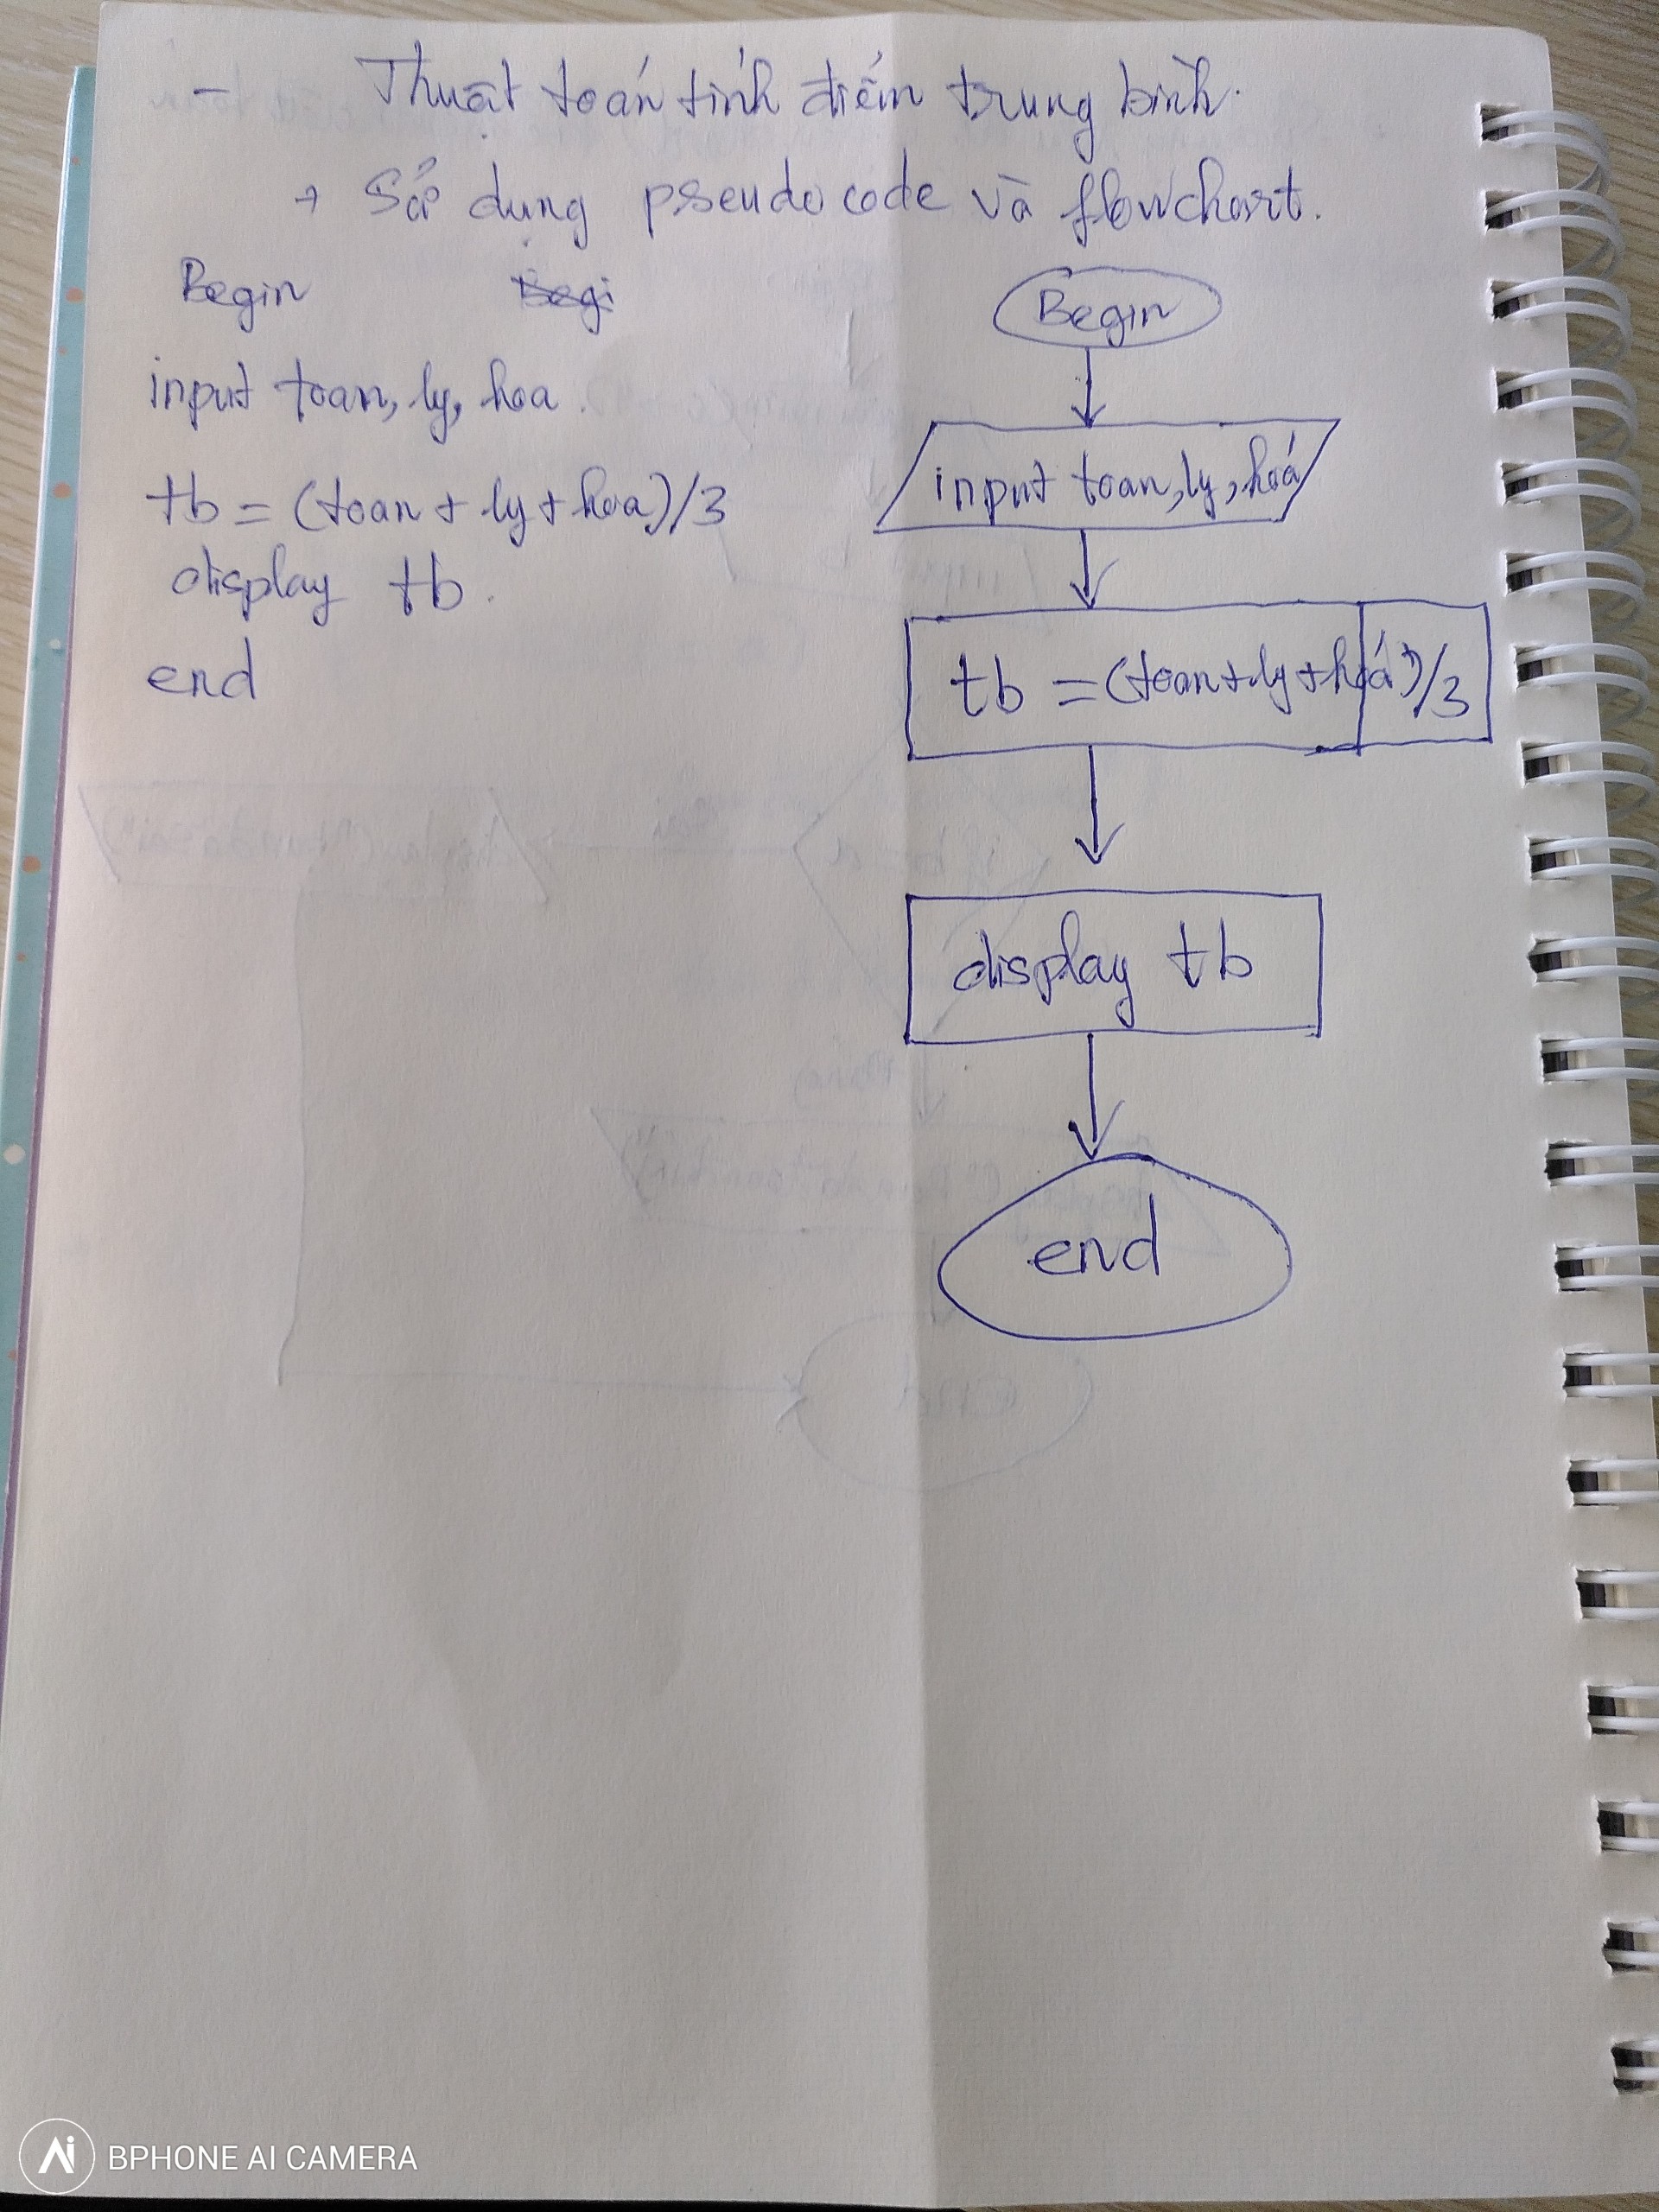 - Thuật toán tính điểm trung bình.
+ Sử dụng pseudo code và flowchart.
Begin
input toan, ly, hoa.
tb = (toan + ly + hoa)/3
display tb.
end
Begin
input toan, ly, hoá
tb = (toan + ly + hoá)/3
display tb
end
Ai BPHONE AI CAMERA